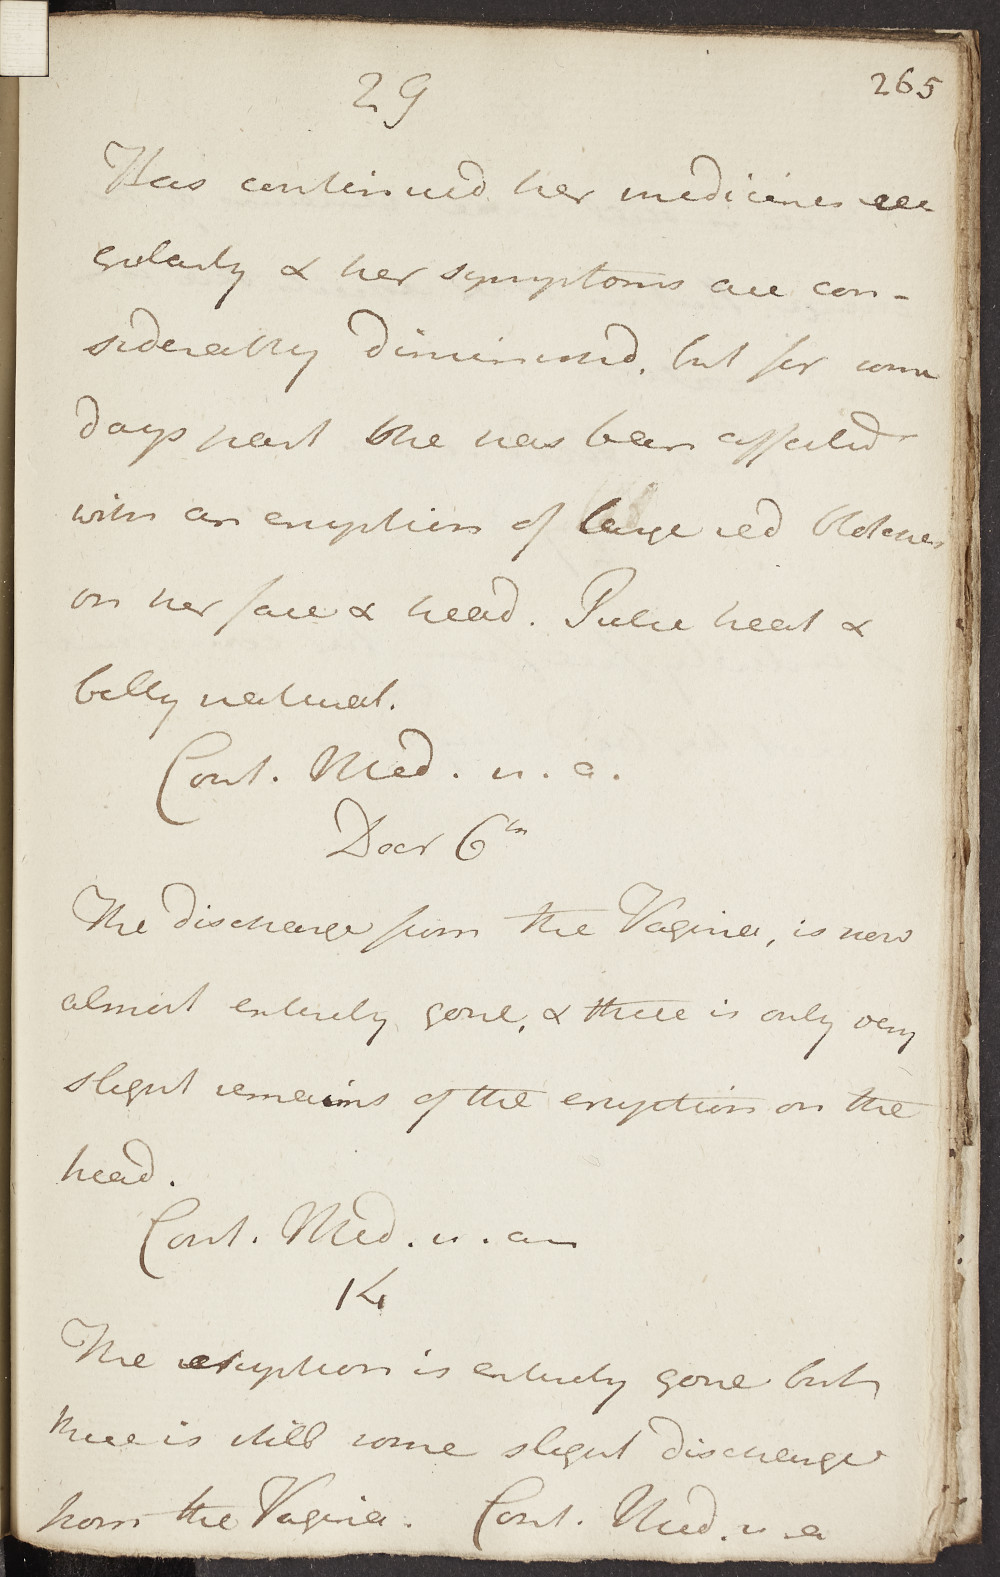 265
29
Has continued her medicines re
gularly & her symptoms are con-
siderably diminished, but for some
days past she has been affected
with an eruption of large red blotches
on her face & head. Pulse heat &
belly natural.
Cont. Med. u. a.
Decr 6th
The discharge from the Vagina, is now
almost entirely gone, & there is only very
slight remains of the eruption on the
head.
Cont. Med. u. a
14
The eruption is entirely gone but
there is still some slight discharge
from the Vagina. Cont. Med. u a